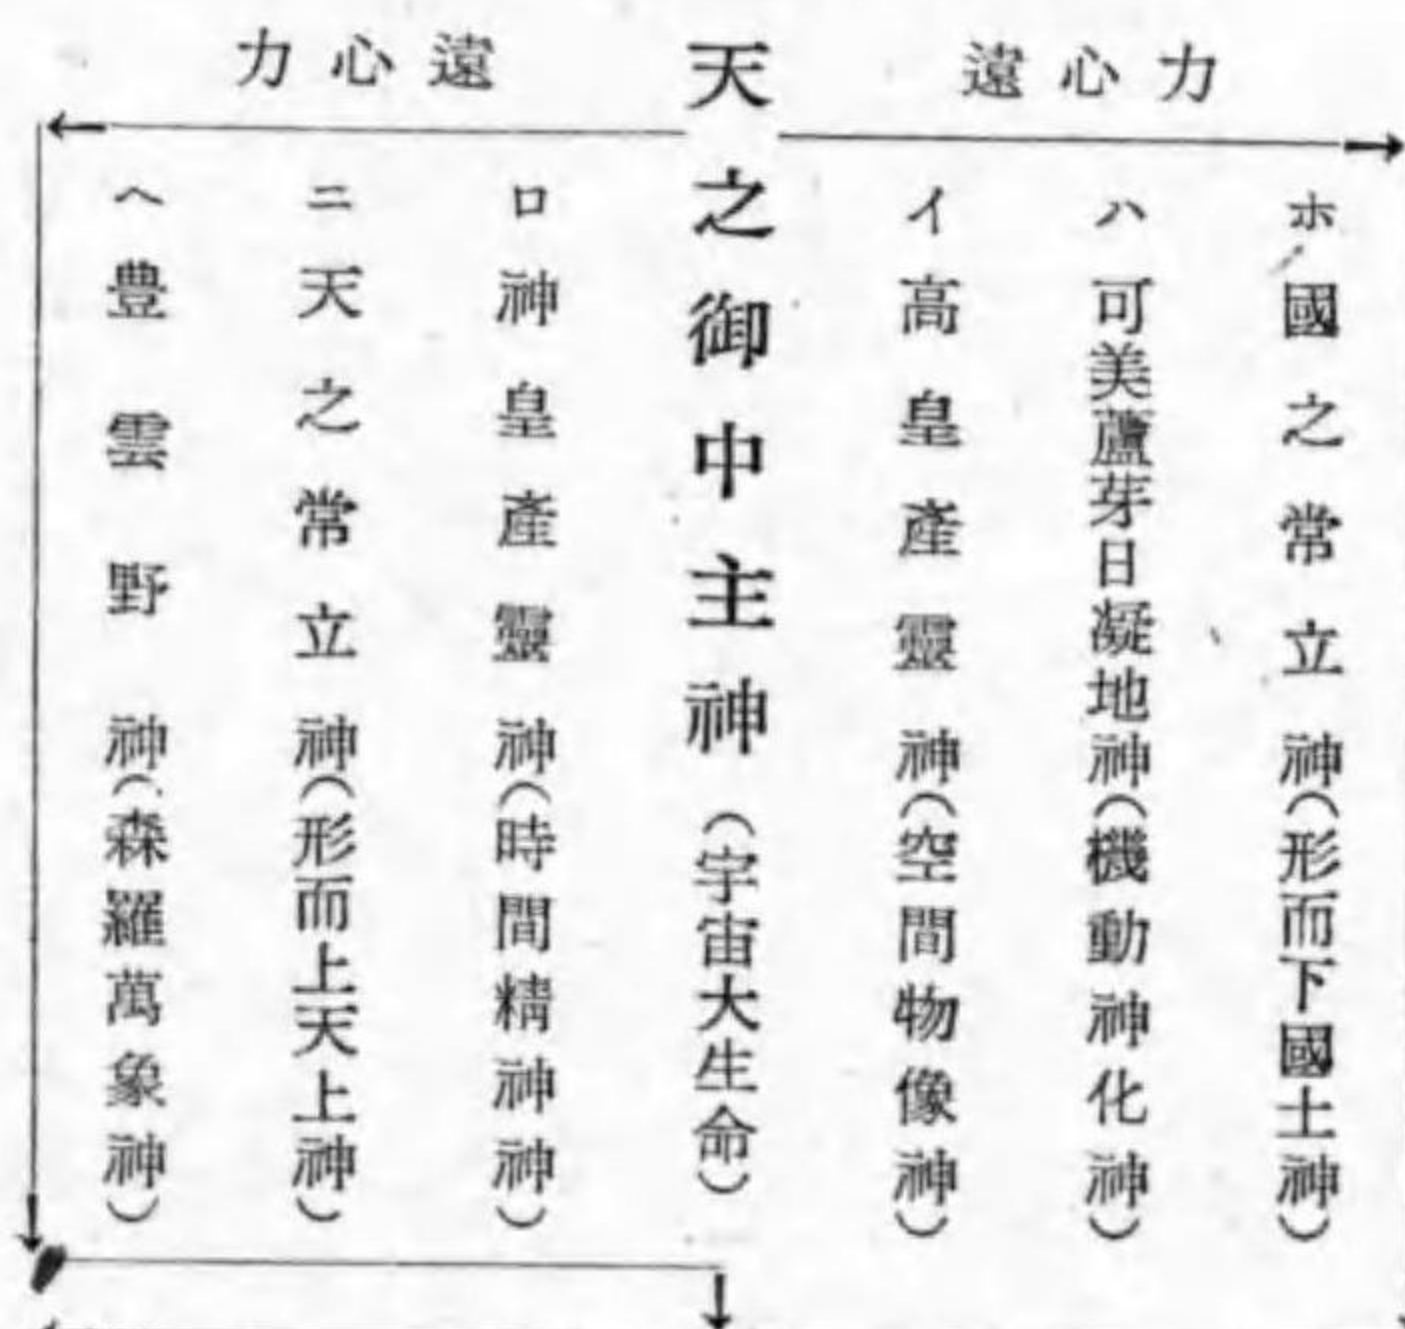 力心遠
遠心力
ホ國之常立神(形而下國土神)
ハ可美蘆芽日凝地神(機動神化神)
イ高皇產靈神(空間物像神)
天之御中主神(宇宙大生命)
ロ神皇產靈神(時間精神神)
ニ天之常立神(形而上天上神)
ヘ豊雲野神(森羅萬象神)